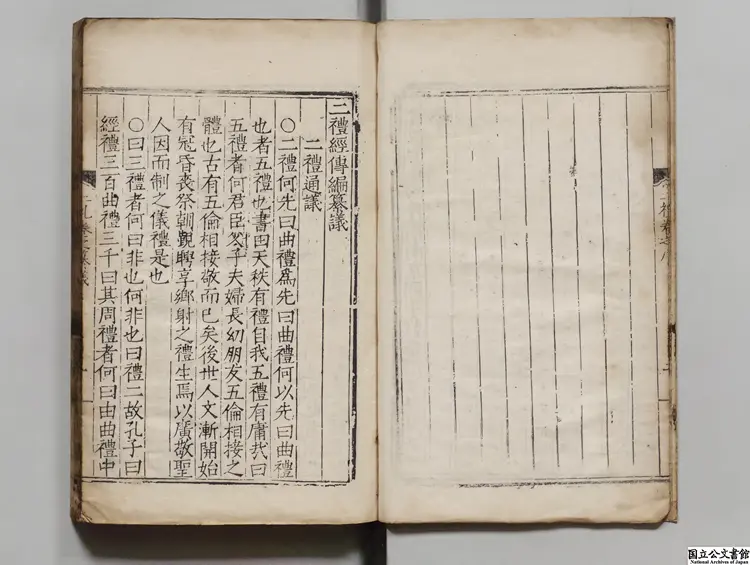 二禮經傳編纂議
二禮通議
○二禮何先曰曲禮爲先曰曲禮何以先曰曲禮
也者五禮也書曰天秩有禮自我五禮有庸㦲曰
五禮者何君臣父子夫婦長幼朋友五倫相接之
體也古有五倫相接敬而已矣後世人文漸開始
有冠昏喪祭朝覲聘享鄉射之禮生焉以廣敬聖
人因而制之儀禮是也
○曰三禮者何曰非也何非也曰禮二故孔子曰
經禮三百曲禮三千曰其周禮者何曰由曲禮中
國立公文書館
National Archives of Japan